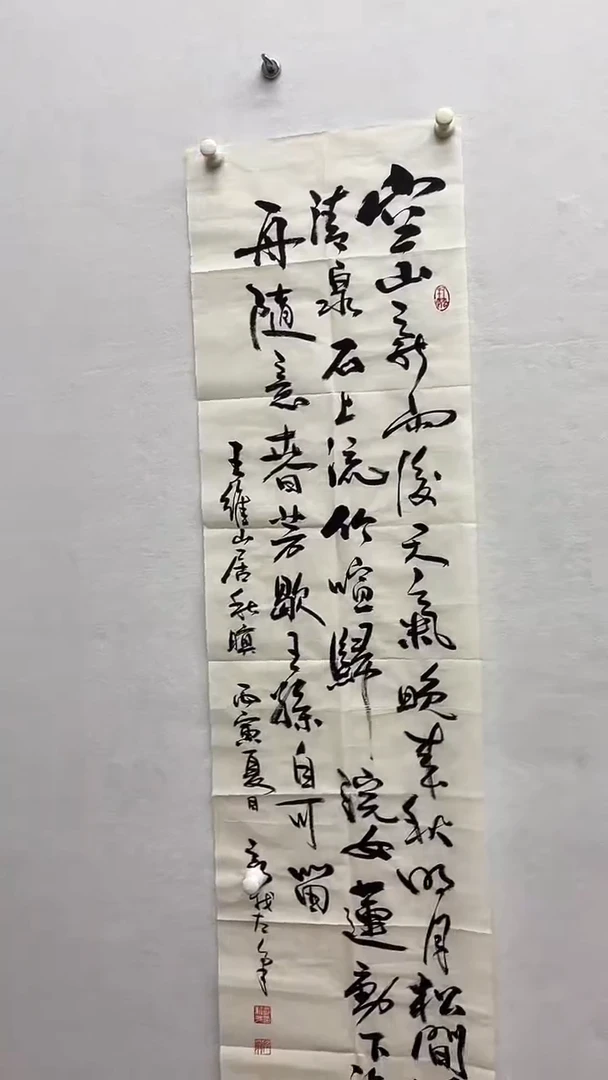 空山新雨後天氣晚来秋明月松間
清泉石上流竹喧歸浣女蓮動下
舟随意春芳歇王孫自可留
王維山居秋暝 丙寅夏日
左筆